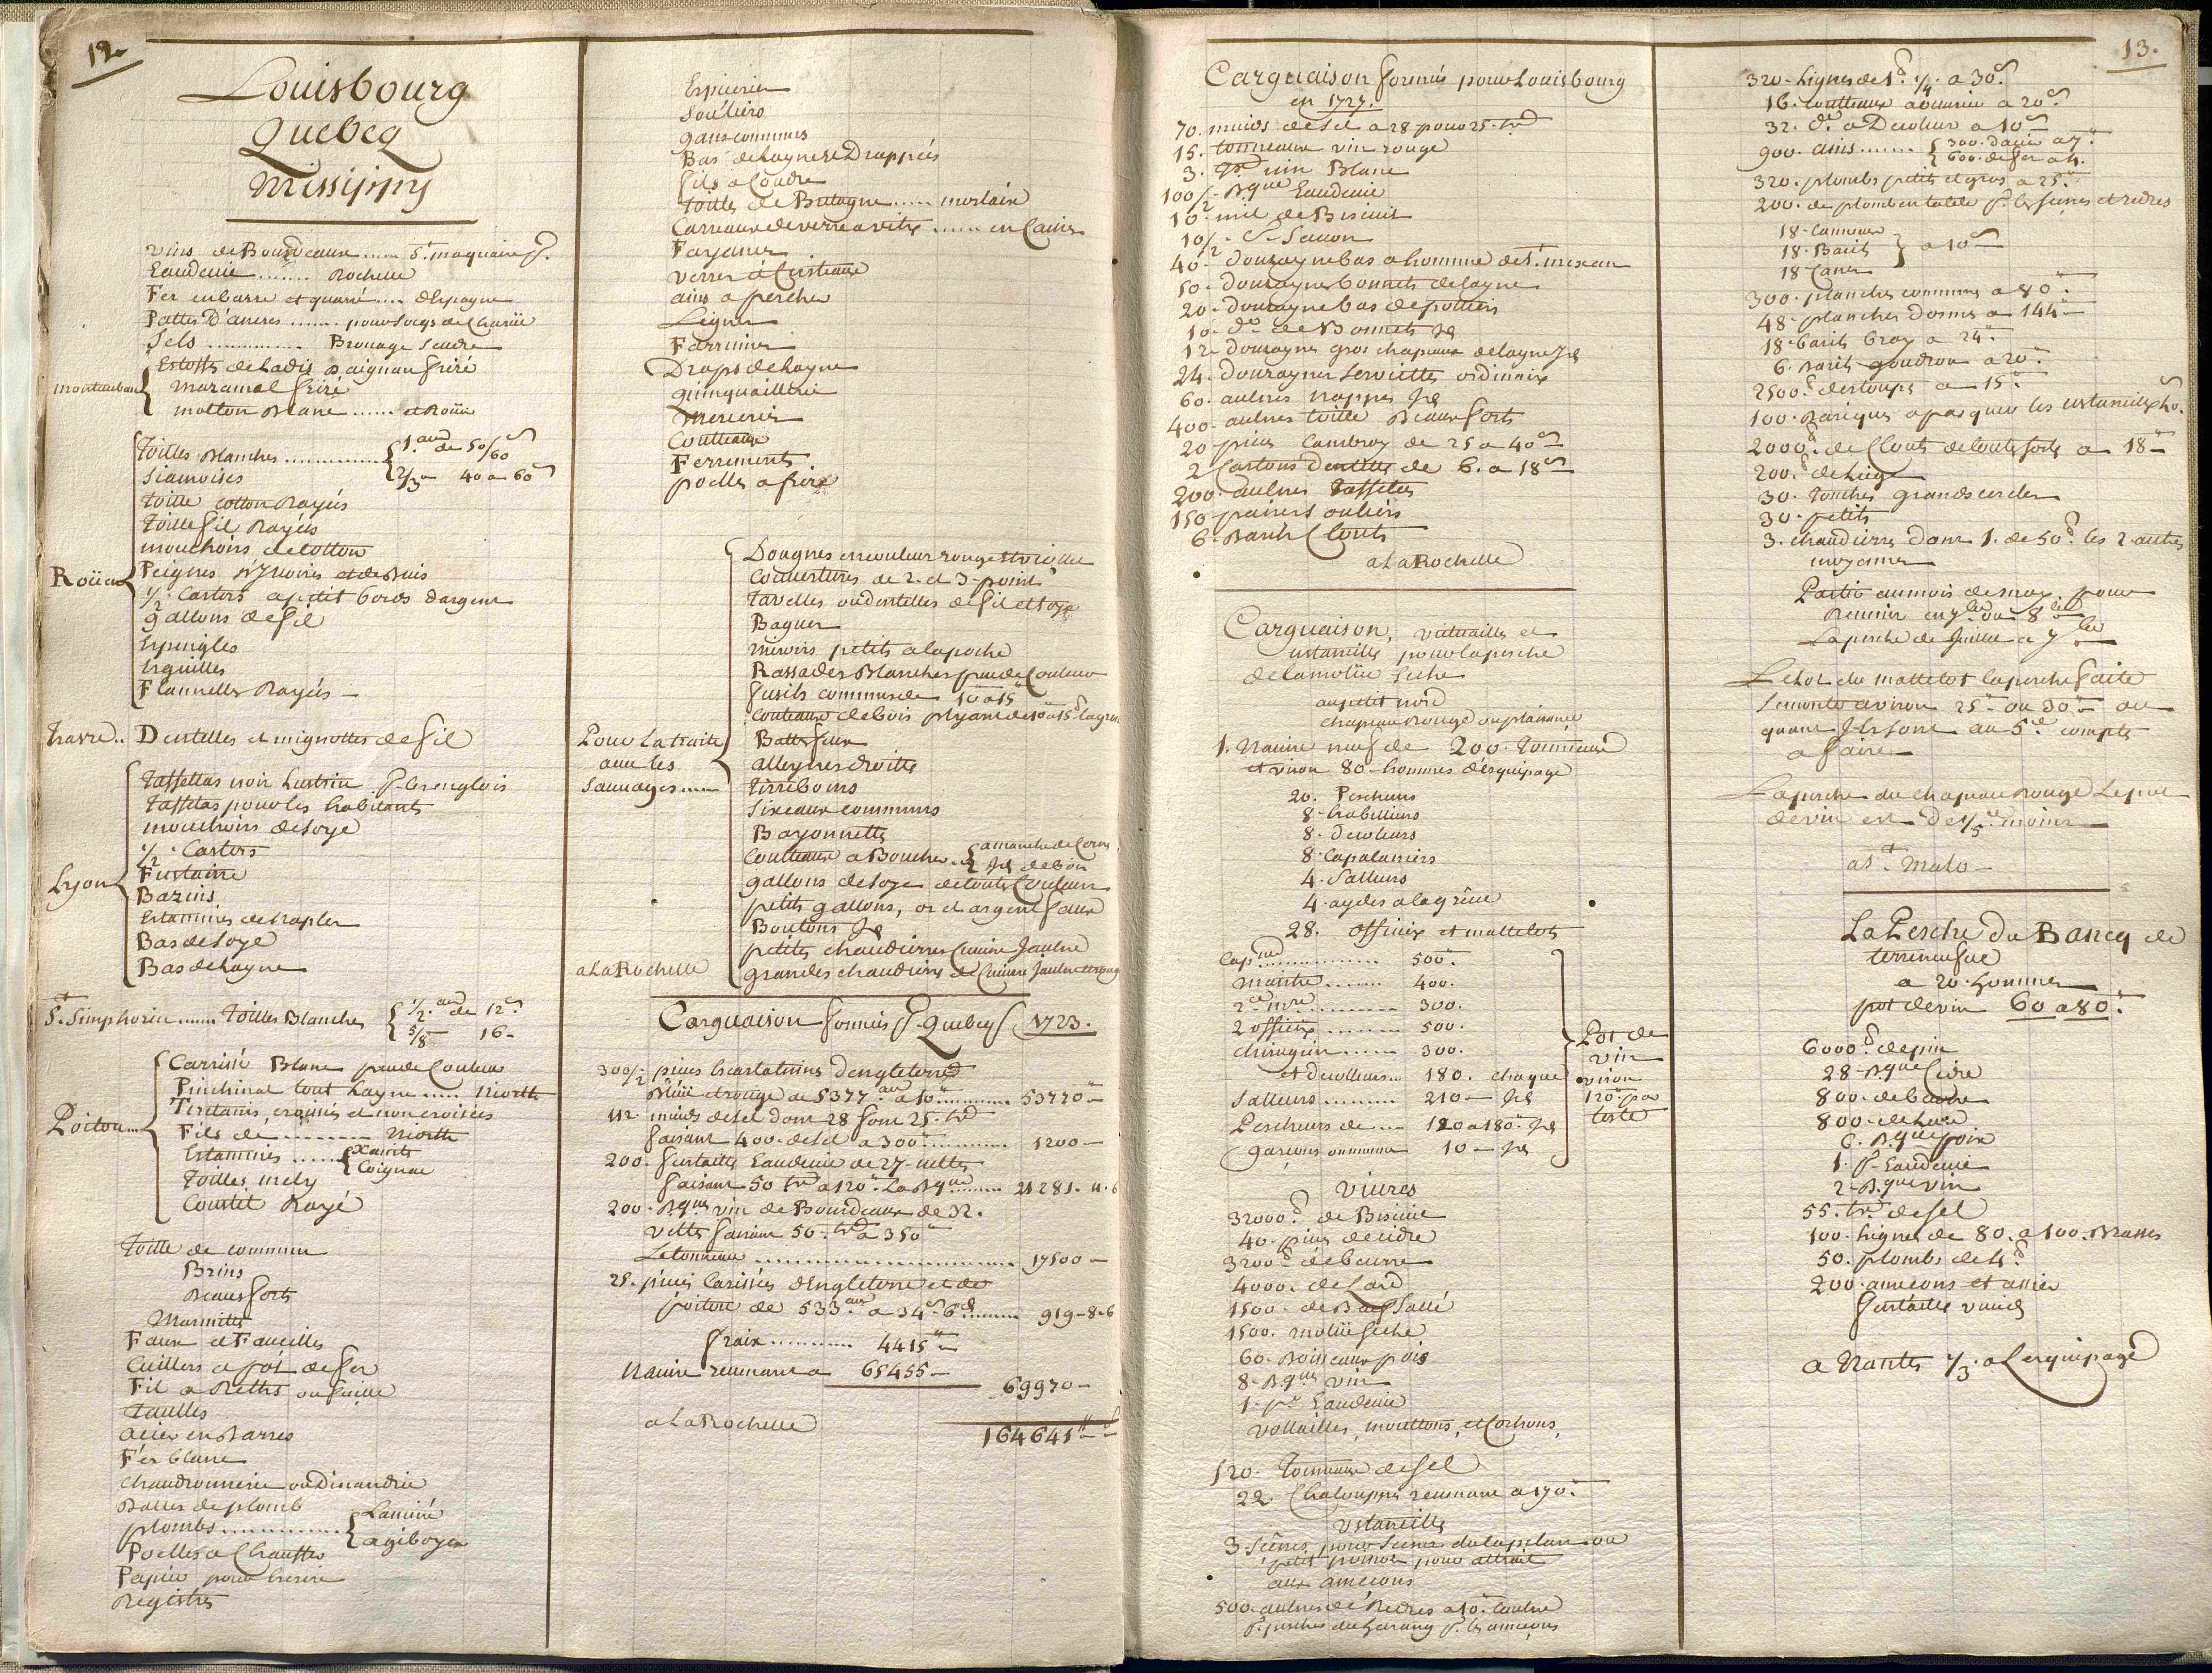 12.
Louisbourg
Quebecq
Missippy
vins de Bourdeaux ..... St. maquaire
Eaudevie ....... Rochelle
Fer en barre et quarré .... d'Espagne
Pattes D'ancres ....... pour socqs de Charüe
Sels ............. Brouage Seudre
montauban
Estoffes de Cadis & aignan frizé
Maramel frizé
molton Blanc ...... et Roüen
Roüen
Toilles Blanches ............. 1. au de 50/60 s
Siamoises 2/3 40 a 60 s
Toille cotton Rayées
Toille fil Rayées
mouchoirs de cotton
Peignes d'Ivoires et de Buis
1/2 Castors a petit bords d'argent
gallons de fil
Epingles
Eguilles
Flannelles Rayées
havre.. Dentelles et mignottes de fil
Lyon
Taffettas noir Lustrin p. les englois
Taffetas pour les habitants
mouchoirs de soye
1/2 Castors
Futaine
Bazins
Estamines de naples
Bas de soye
Bas de Layne
St. Simphorien ..... Toilles Blanches 1/2 au de 12 s
5/8 16 -
Poitou...
Carrisé Blanc peu de Couleur
Pinchinat tout Layne ..... Niorth
Tiretanis, croisés et non croisées
Fils de ......... Niorth
Estamines ..... Xaintes
Coignac
Toilles mely
Coustil Rayé
Toille de commun
Brins
Beaufforts
Marmittes
Faux et Faucilles
Cuillers a pot de fer
Fil a Rettes ou
Taulles
acier en Barres
Fer blanc
Chaudronnerie ou Dinandrie
Balles de plomb
plombs ............. Laminé
a giboyer
Poelles a Chauffer
Papier pour Escrire
Registres
Epiceries
Souliers
gans communs
Bas de Laynes Drappées
fils a Coudre
Toilles de Bretagne ..... morlaix
Carreaux de verre a vitre ..... en Caisse
Fayance
verres & Cristeaux
ains a pescher
Lignes
Farrinier
Draps de Layne
quinquaillerie
Mercerie
Coutteaux
Ferrements
poelles a frire
Pour la traite
avec les
Sauvages ....
Dougnes en couleur rouge et violle
Couvertures de 2. et 3. point
Tavelles ou dentelles de fil et soye
Bagues
miroirs petits a la poche
Rassades Blanches peu de Couleur
fusils communs de 10 a 15
Couteaux de bois plyant de 10 a 15 la grosse
Battefeux
alleynes droites
Tirreboures
Sizeaux communs
Bayonnettes
Couteaux a Boucher .. a manche de Corne
Idem de bois
gallons de soye de toutte Couleur
petits gallons, or et argent faux
Boutons Id
petites chaudieres Cuivre Jaulne
grandes chaudieres de Cuivre Jaulne
a La Rochelle
Carguaison formée p. Quebecq 1723.
300/2 pieces Escarlatines d'engleterre
Bleüe et rouge de 5377 au a 10 ......... 53770 -
112. muids de sel dont 28 font 25. tx
faisant 400. de sel a 300 .......... 1200 -
200. futailles Eaudevie de 27. veltes
faisant 50 tx a 120 La Bque ....... 21281. 11. 6
200. Bques vin de Bourdeaux de 32.
veltes faisant 50. tx a 350
Le tonneau ........................ 17500 -
25. pieces Carisées d'Engleterre et de
poitou de 533 au a 34 s 6 d ....... 919 - 8. 6
fraix ........... 4415
Navire revenant a 65455 -
69970 -
a La Rochelle
164641
13.
Carguaison formée pour Louisbourg
en 1727.
70. muids de sel a 28 pour 25. tx
15. tonneaux vin rouge
3. Id vin Blanc
100/2 Bque Eaudevie
10. mil de Biscuit
10/2 C. Savon
40. douzaynes bas a homme de St. mexan
50. douzaynes bonnets de Layne
20. douzaynes bas de poitiers
10. do de Bonnets Id
12. douzaynes gros chapeaux de Layne Id
24. douzaynes serviettes ordinaire
60. aulnes nappes Id
400. aulnes toille Beaufforts
20 pieces Cambray de 25 a 40 s
2 Cartons Dentelles de 6. a 18 s
200. aulnes taffetas
150 paires souliers
6. Barils Clouts
a La Rochelle
Carguaison, victuailles et
ustancilles pour la pesche
de la molüe seche
au petit nord
chapeau Rouge ou plaisance
1. Navire neuf de 200. Tonneaux
et viron 80. hommes d'esquipage
20. Pescheurs
8. habilleurs
8. decoleurs
8. Capalaniers
4. Salleurs
4. aydes a la grêve
28. officiers et mattelots
Capne .............. 500.
maistre ........ 400.
2e Mre ......... 300.
2 officiers ........ 500.
chirurgien ...... 300.
et decolleurs .. 180. chaque
Salleurs ......... 210 - Id
Pescheurs de ... 120 a 180. Id
garçons ou mousse 10 - Id
Pot de
vin
environ
120 par
teste
Vivres
32000. de Biscuit
40. pieces de cidre
3200 de beurre
4000. de Lard
1500. de Boeuf Sallé
1500. molüe seche
60. Boisseaux pois
8. Bques vin
1. pe Eaudevie
vollailles, mouttons, et Cochons,
120. Tonneaux de sel
22. Chalouppes revenant a 170.
Ustancilles
3. seines pour seiner du Capelan ou
petit poisson pour attrait
aux ameçons
500. aulnes de Redres a 10. Laulne
p. pescher du harang p. les ameçons
320. Lignes de 1 1/4 a 30 s
16. Coutteaux a ouvrir a 20 s
32. do a Decoleur a 10 s
900. ains ....... 300. d'acier a 7
600. de fer a 4.
320. plombs petits et gros a 25.
200. de plomb en table p. les seines et redres
18. Canneaux
18. Barils
18 Canes
a 10 s
300. planches communes a 80.
48. planches dosnes a 144
18. barils bray a 24.
6. Barils goudron a 20.
2500. destoupe a 15.
100. Bariques a pacquer les ustancilles
2000. de Clouts de toute sorte a 18 -
200. de Liege
30. Tonches grands cercles
30. petits
3. chaudieres dont 1. de 50. les 2. autres
moyennes
Partir au mois de may. pour
Revenir en 7bre ou 8bre
La pesche de Juillet a 7bre
Le Lot du mattelot la pesche faite
se monte environ 25 ou 30 ou
quant Ils sont au 5e compte
a faire
La pesche du chapeau Rouge Le pot
de vin est de 1/5 moins
a St. Malo -
La Pesche Du Bancq de
terreneufve
a 20. hommes
pot de vin 60 a 80.
6000. de pain
28. Bque Cidre
800. de beurre
800. de Lard
6. Bque poix
1. p. Eaudevie
2. Bque vin
55. tx de sel
100. Lignes de 80. a 100. Brasses
50. plombs de 4
200. ameçons et assiés
futailles vuides
a Nantes 1/3 a Lesquipage